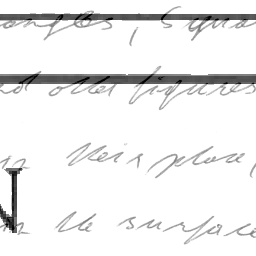 angles, Squa
and other figures
in their place,
N
in the surface